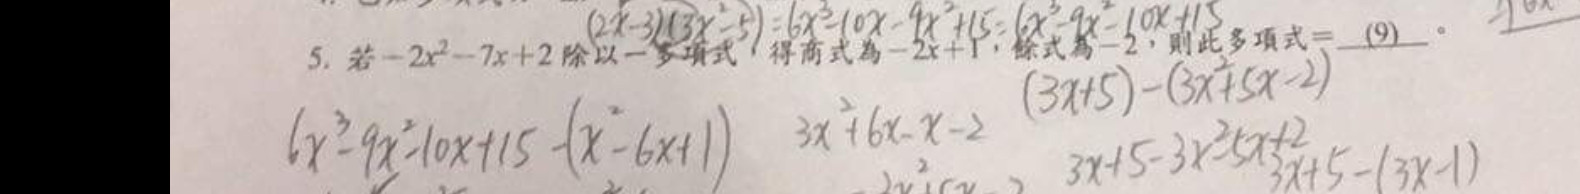 (2x-3)(3x²-5)=6x³-10x-9x²+15=6x³-9x²-10x+15
5. 若-2x²-7x+2除以一多項式,得商式為-2x+1,餘式為-2,則此多項式=(9)。
(3x+5)-(3x²+5x-2)
6x³-9x²-10x+15-(x²-6x+1)
3x²+6x-x-2
3x+5-3x²-5x+2
3x+5-(3x-1)